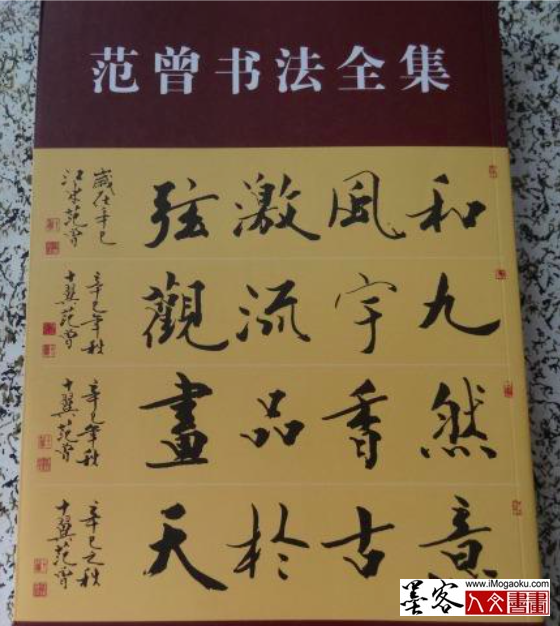 范曾书法全集
和風激弦
歲在辛巳
江東范曾
九宇流觀
辛巳年秋
十翼范曾
然香品畫
辛巳年秋
十翼范曾
意古於天
辛巳之秋
十翼范曾
墨客
www.iMogaoku.com
人文書畫